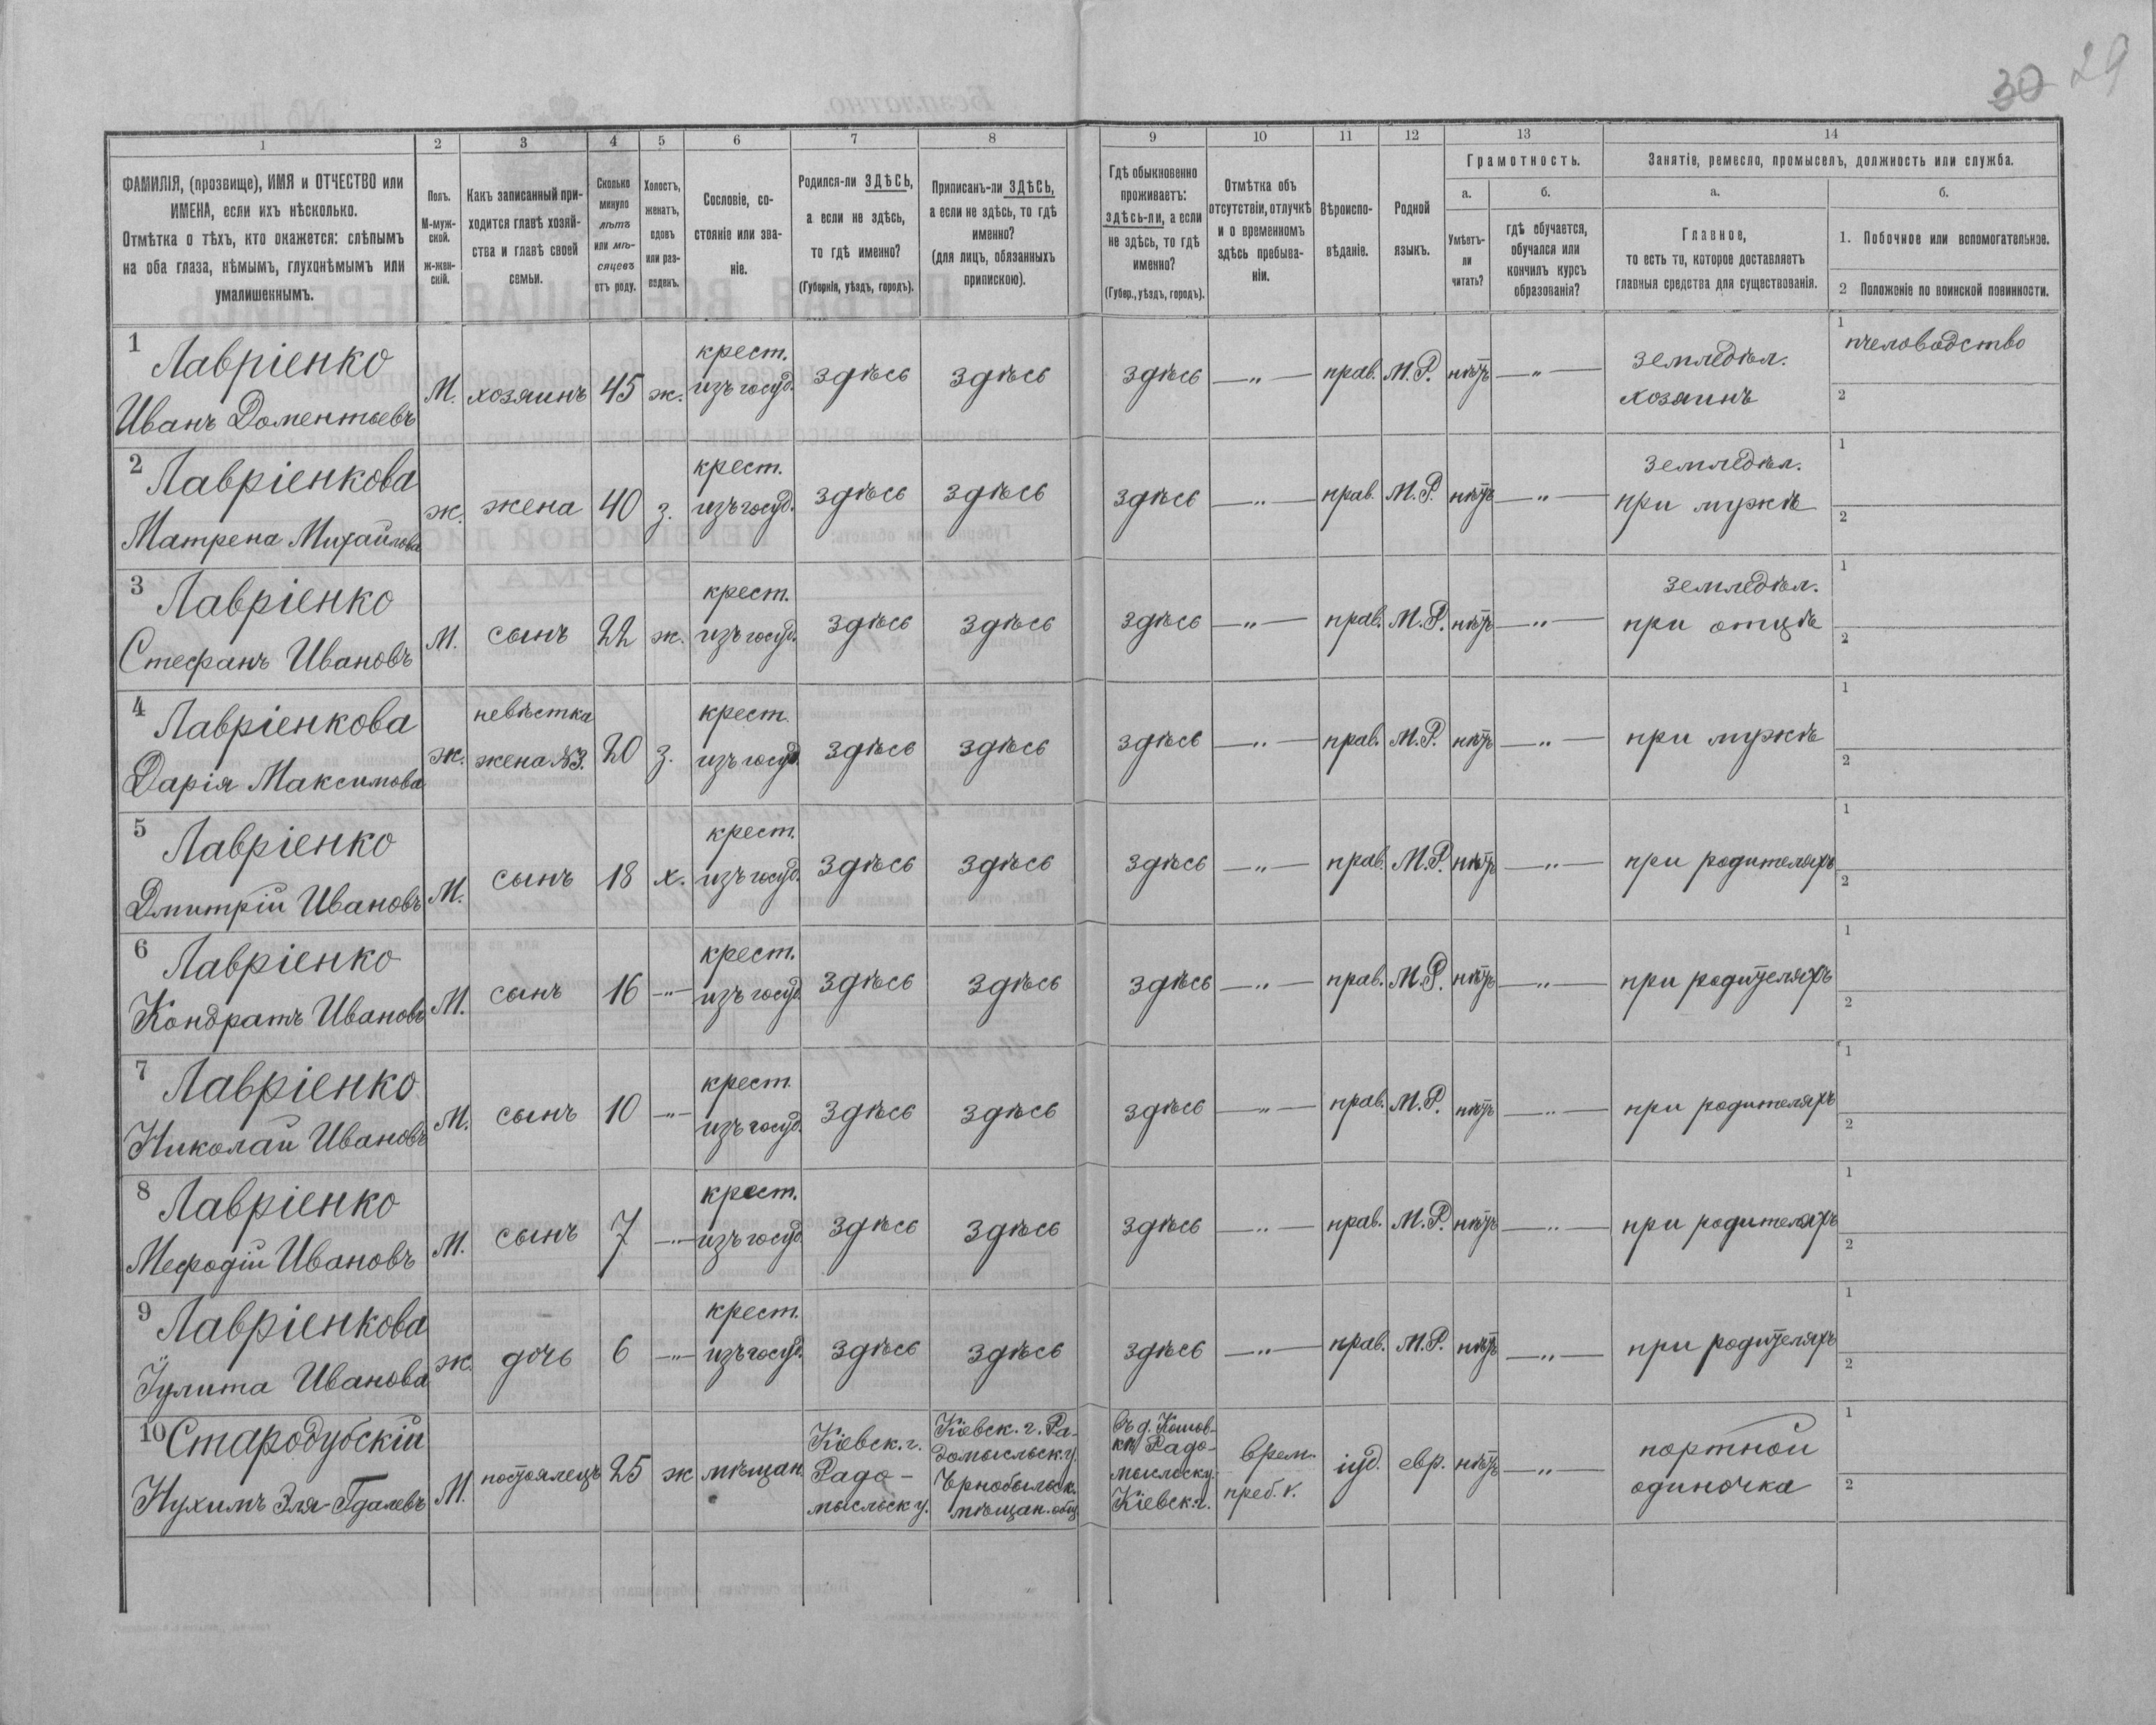 30 29
1 2 3 4 5 6 7 8 9 10 11 12 13 14
ФАМИЛІЯ, (прозвище), ИМЯ и ОТЧЕСТВО или
ИМЕНА, если ихъ нѣсколько.
Отмѣтка о тѣхъ, кто окажется: слѣпымъ
на оба глаза, нѣмымъ, глухонѣмымъ или
умалишеннымъ.
Полъ.
М-муж-
ской.
ж-жен-
скій.
Какъ записанный при-
ходится главѣ хозяй-
ства и главѣ своей
семьи.
Сколько
минуло
лѣтъ
или мѣ-
сяцевъ
отъ роду.
Холостъ,
женатъ,
вдовъ
или раз-
веденъ.
Сословіе, со-
стояніе или зва-
ніе.
Родился-ли ЗДѢСЬ,
а если не здѣсь,
то гдѣ именно?
(Губернія, уѣздъ, городъ).
Приписанъ-ли ЗДѢСЬ,
а если не здѣсь, то гдѣ
именно?
(для лицъ, обязанныхъ
припискою).
Гдѣ обыкновенно
проживаетъ:
здѣсь-ли, а если
не здѣсь, то гдѣ
именно?
(Губер., уѣздъ, городъ).
Отмѣтка объ
отсутствіи, отлучкѣ
и о временномъ
здѣсь пребыва-
ніи.
Вѣроиспо-
вѣданіе.
Родной
языкъ.
Грамотность.
а.
Умѣетъ-
ли
читать?
б.
гдѣ обучается,
обучался или
кончилъ курсъ
образованія?
Занятіе, ремесло, промыселъ, должность или служба.
а.
Главное,
то есть то, которое доставляетъ
главныя средства для существованія.
б.
1. Побочное или вспомогательное.
2 Положеніе по воинской повинности.
1 Лавріенко крест. 1 пчеловодство
Иванъ Доментьевъ М. хозяинъ 45 ж. изъ госуд. здѣсь здѣсь здѣсь — „ — прав. М.Р. нѣтъ — „ — землєдѣл.
хозяинъ 2
2 Лавріенкова крест. землєдѣл. 1
Матрена Михайлова ж. жена 40 з. изъ госуд. здѣсь здѣсь здѣсь — „ — прав. М.Р. нѣтъ — „ — при мужѣ 2
3 Лавріенко крест. землєдѣл. 1
Стефанъ Ивановъ М. сынъ 22 ж. изъ госуд. здѣсь здѣсь здѣсь — „ — прав. М.Р. нѣтъ — „ — при отцѣ 2
4 Лавріенкова невѣстка крест. 1
Дарія Максимова ж. жена №3. 20 з. изъ госуд. здѣсь здѣсь здѣсь — „ — прав. М.Р. нѣтъ — „ — при мужѣ 2
5 Лавріенко крест. 1
Дмитрій Ивановъ М. сынъ 18 х. изъ госуд. здѣсь здѣсь здѣсь — „ — прав. М.Р. нѣтъ — „ — при родителяхъ 2
6 Лавріенко крест. 1
Кондратъ Ивановъ М. сынъ 16 — „ — изъ госуд. здѣсь здѣсь здѣсь — „ — прав. М.Р. нѣтъ — „ — при родителяхъ 2
7 Лавріенко крест. 1
Николай Ивановъ М. сынъ 10 — „ — изъ госуд. здѣсь здѣсь здѣсь — „ — прав. М.Р. нѣтъ — „ — при родителяхъ 2
8 Лавріенко крест. 1
Мефодій Ивановъ М. сынъ 7 — „ — изъ госуд. здѣсь здѣсь здѣсь — „ — прав. М.Р. нѣтъ — „ — при родителяхъ 2
9 Лавріенкова крест. 1
Іулита Иванова ж. дочь 6 — „ — изъ госуд. здѣсь здѣсь здѣсь — „ — прав. М.Р. нѣтъ — „ — при родителяхъ 2
10 Стародубскій
Нухимъ Эля-Гдалевъ М. постоялецъ 25 ж мѣщан.
Кіевск. г.
Радо-
мысльск у.
Кіевск. г. Ра-
домысльск. у.
Чрнобыльск.
мѣщан. общ.
въ д.
Радо-
мысльск у.
Кіевск. г.
Врем.
преб. іуд. евр. нѣтъ — „ — портной
одиночка
1
2